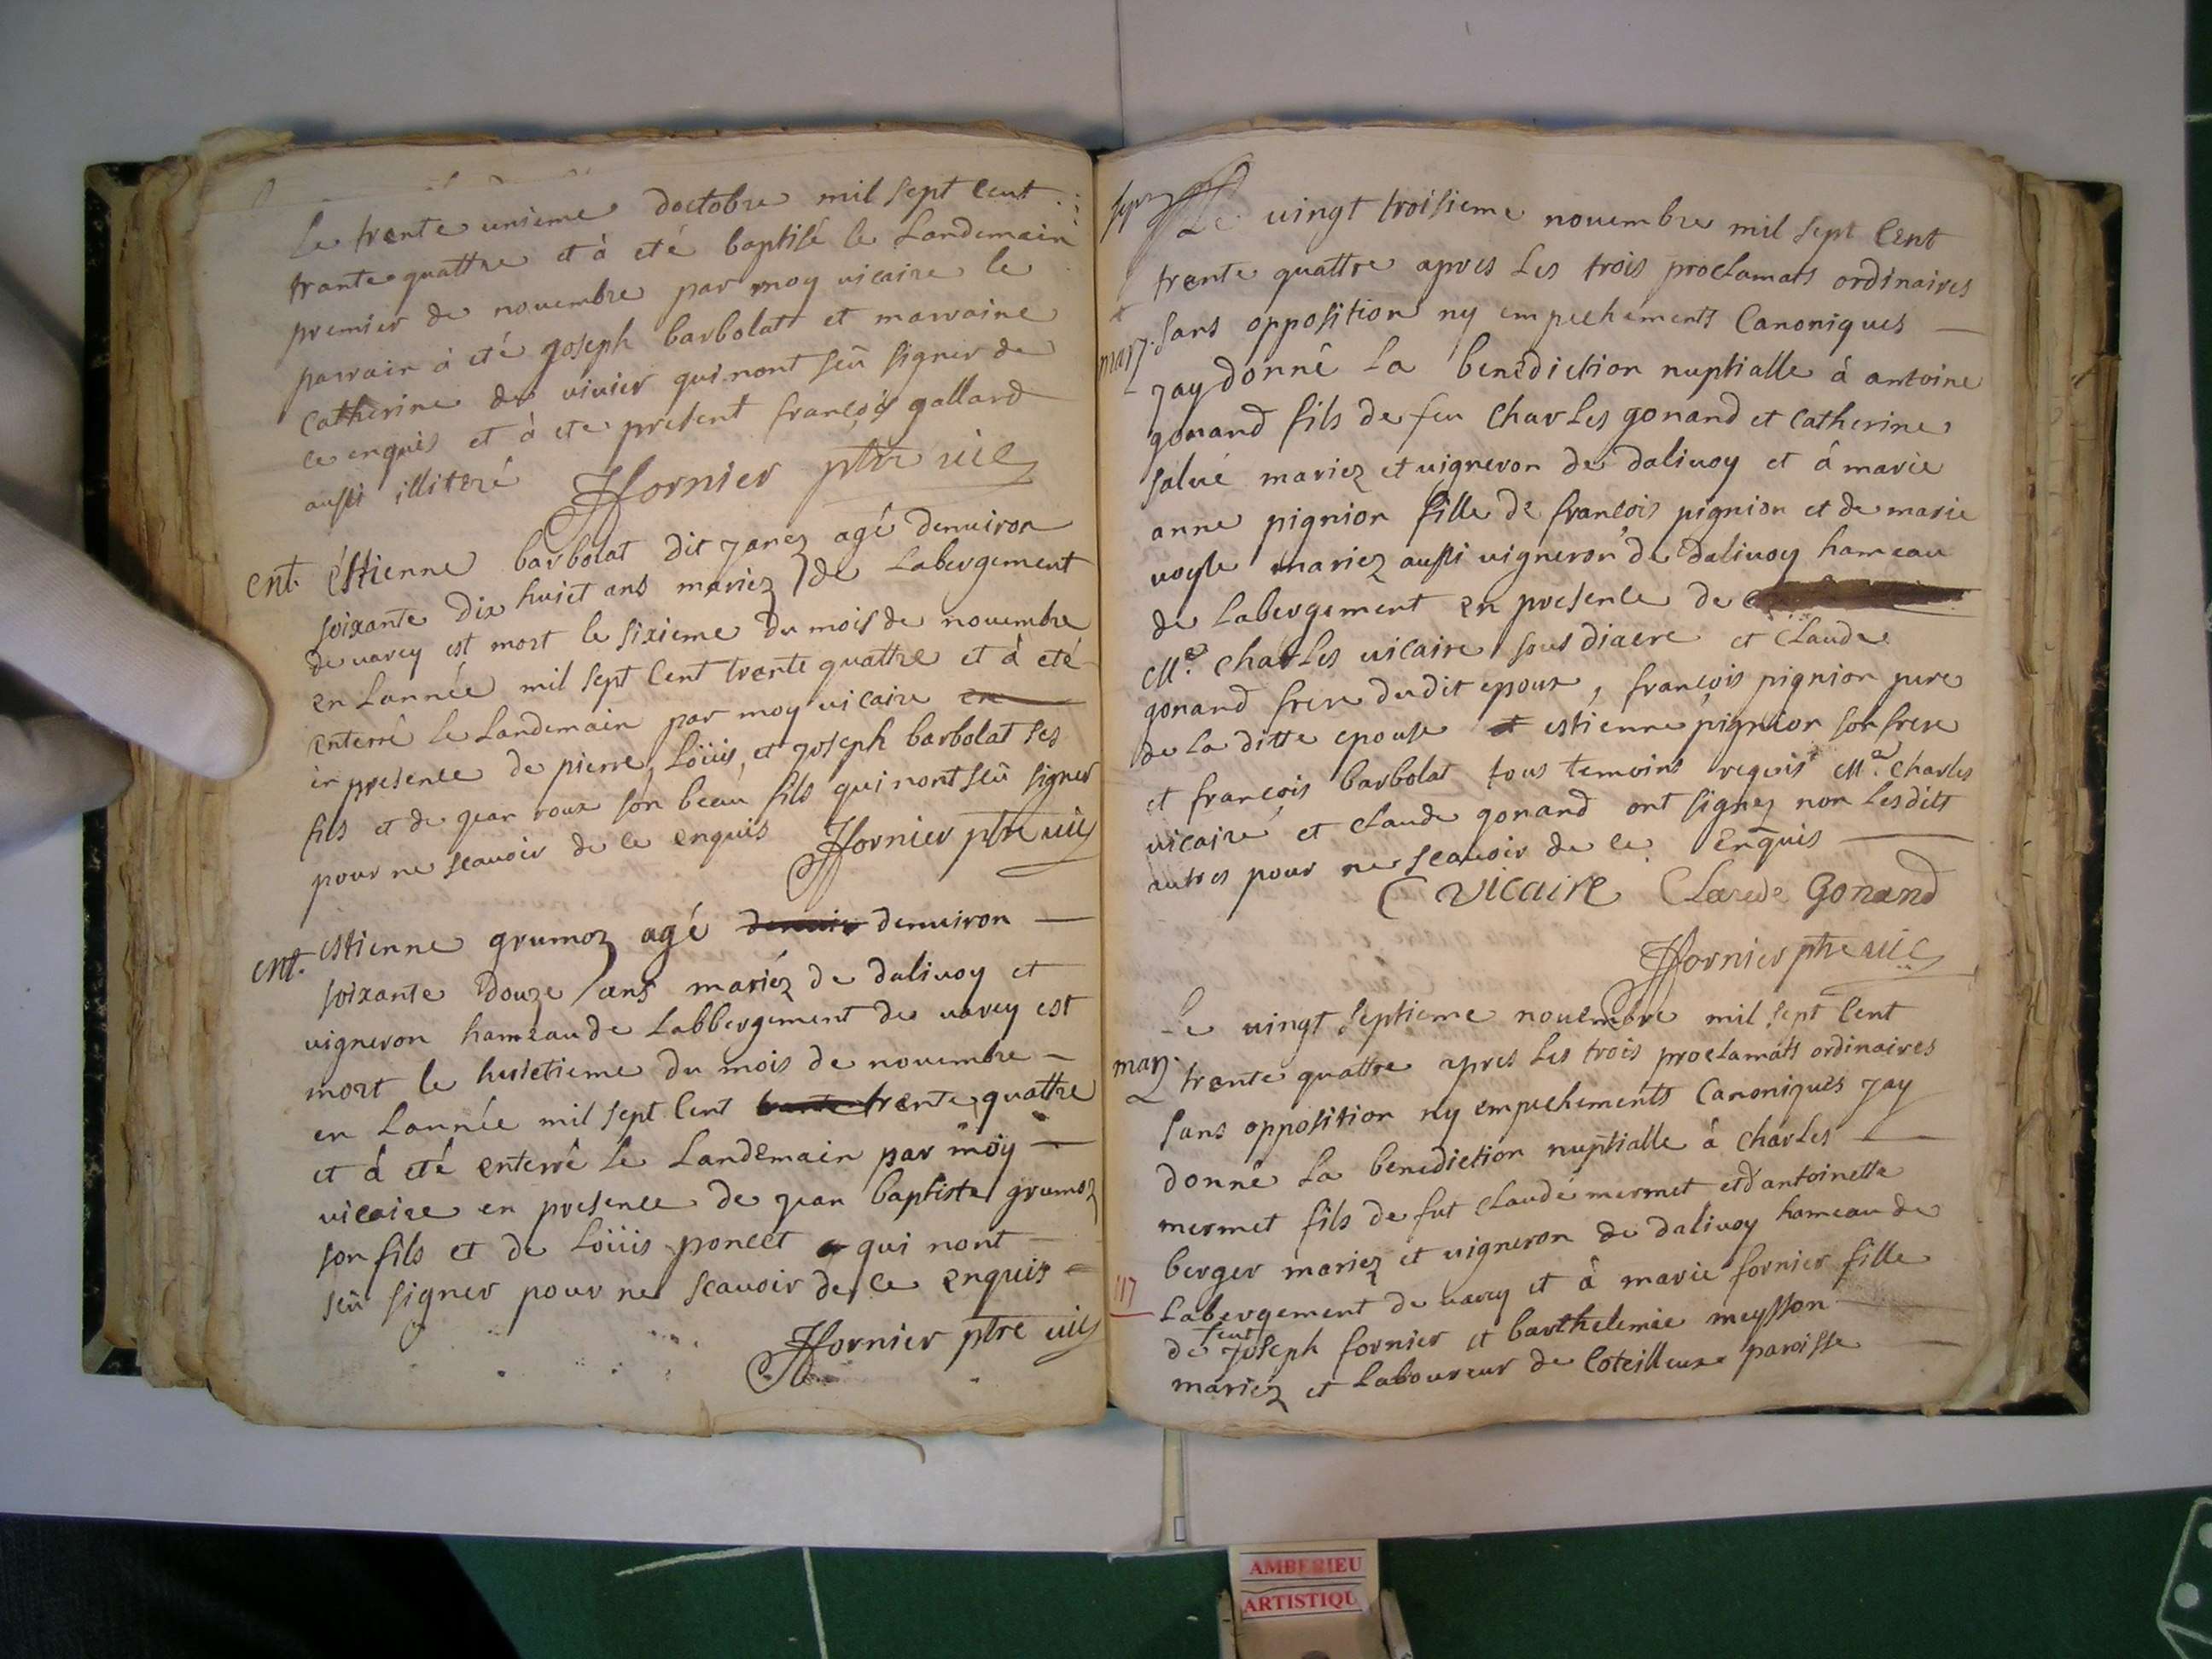 Le trente unieme doctobre mil sept cent
trante quattre et à eté baptisé le Landemain
premier de novembre par moy vicaire le
parrain à eté joseph barbolat et marraine
Catherine du vivier qui nont seû signer de
ce enquis et à ete present françois gallard
aussi illiteré Fornier ptre vic
ent. éstienne barbolat dit janez agé denviron
soixante dix huict ans mariez de Labergement
de varey est mort le sixieme du mois de novembre
en Lannée mil sept Cent trente quattre et à eté
enterré le Landemain par moy vicaire en
in presence de pierre, Loüis, et joseph barbolat ses
fils et de jean roux son beau fils qui nont seû signer
pour ne scavoir de ce enquis Fornier ptre vic
ent. estienne grumoz agé denviron denviron
soixante douze ans mariéz de dalivoy et
vigneron hameau de Labbergement de varey est
mort le huictieme du mois de novembre
en Lannée mil sept Cent trante trente quattre
et à eté enterré le Landemain par moy
vicaire en presence de jean baptiste grumoz
son fils et de Loüis poncet qui nont
seû signer pour ne scavoir de ce enquis
Fornier ptre vic
Le vingt troisieme novembre mil sept Cent
trente quattre apres Les trois proclamats ordinaires
sans opposition ny empechements Canoniques
marz. jay donné La benediction nuptialle à antoine
gonand fils de feu Charles gonand et Catherine
salvé mariez et vigneron de dalivoy et à marie
anne pignion fille de françois pignion et de marie
voyle mariez aussi vigneron de dalivoy hameau
de Labergement en presence de
Me. Charles vicaire sous diacre et Claude
gonand frere dudit epoux, françois pignion pere
de La ditte epouse et estienne pignion son frere
et françois barbolat tous temoins requis Me. Charles
vicaire et Claude gonand ont signez non Lesdits
autres pour ne scavoir de ce Enquis
C Vicaire Claude Gonand
Fornier ptre vic
Le vingt septieme novembre mil sept Cent
marz. trente quattre apres Les trois proclamats ordinaires
sans opposition ny empechements Canoniques jay
donné La benediction nuptialle à Charles
mermet fils de fut Claude mermet et d'antoinette
berger mariez et vigneron de dalivoy hameau de
Labergement de varey et à marie fornier fille
117
de feu joseph fornier et barthelemie meysson
mariez et Laboureur de Coteilleux paroisse
AMBERIEU
ARTISTIQU